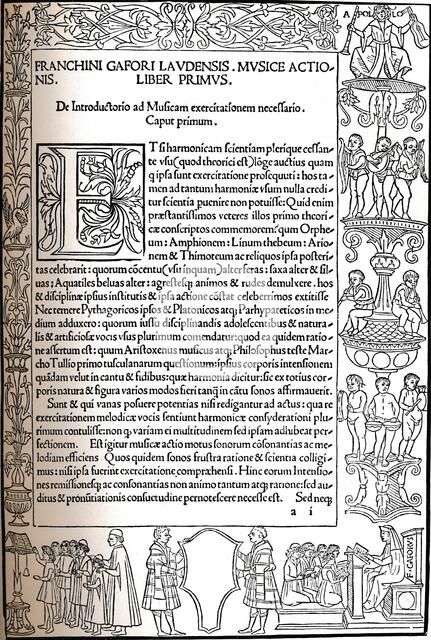 APOLLO
FRANCHINI GAFORI LAVDENSIS. MVSICE ACTIO-
NIS. LIBER PRIMVS.
De Introductorio ad Musicam exercitationem necessario.
Caput primum.
ETsi harmonicam scientiam plerique cessan-
te vsu(quod theorici est)lõge auctius quam
q ipsa sunt exercitatione prosequuti: hos ta-
men ad tantum harmoniæ vsum nulla credi-
tur scientia puenire non potuisse: Quid enim
præstantissimos veteres illos primo theori-
cæ conscriptos commemorem? qum Orphe-
um: Amphionem: Linum thebeum: Ario-
nem & Thimoteum ac reliquos ipsa posteri-
tas celebrarit: quorum cõcentu(vsu inquam)alter feras: saxa alter & sil-
uas; Aquatiles beluas alter: agrestesq; animos & rudes demulxere. hos
& disciplinæ ipsius institutis & ipsa actione cõstat celeberrimos extitisse
Nec temere Pythagoricos ipsos & Platonicos atq; Parhypateticos in me-
dium adduxero: quorum iussu disciplinandis adolescentibus & natura-
lis & artificiosæ vocis vsus plurimum comendatur: quod ea quidem ratio-
ne assertum est: quum Aristoxenus musicus atq; Philosophus teste Mar-
cho Tullio primo tusculanarum questionum: ipsius corporis intensionem
quãdam velut in cantu & fidibus: quæ harmonia dicitur: sic ex totius cor-
poris natura & figura varios modos fieri tanq̃ in cãtu sonos affirmauerit.
Sunt & qui vanas posuere potentias nisi redigantur ad actus: qua re
exercitationem melodicæ vocis sentiunt harmonicæ consyderationi plu-
rimum contulisse: non q; variam ei multitudinem sed ipsam adiubeat per-
fectionem. Est igitur musicæ actio motus sonorum cõsonantias ac me-
lodiam efficiens Quos quidem sonos frustra ratione & scientia colligi-
mus: nisi ipsa fuerint exercitatione compræhensi. Hinc eorum Intensio-
nes remissionesq; ac consonantias non animo tantum atq; ratione: sed au-
ditus & pronũtiationis consuetudine pernotescere necesse est. Sed neq;
a i
F. GAFORVS